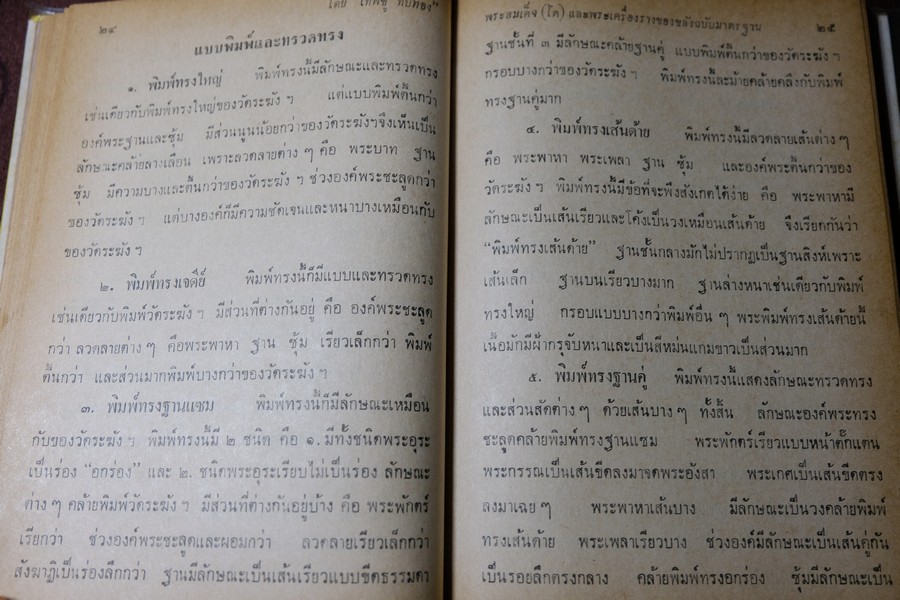 ๒๔
โดย "เทพชู ทับทอง"
แบบพิมพ์และทรวดทรง
๑. พิมพ์ทรงใหญ่ พิมพ์ทรงนี้มีลักษณะและทรวดทรง
เช่นเดียวกับพิมพ์ทรงใหญ่ของวัดระฆัง ฯ แต่แบบพิมพ์ตื้นกว่า
องค์พระฐานและซุ้ม มีส่วนนูนน้อยกว่าของวัดระฆังฯจึงเห็นเป็น
ลักษณะคล้ายลางเลือน เพราะลวดลายต่าง ๆ คือ พระบาท ฐาน
ซุ้ม มีความบางและตื้นกว่าของวัดระฆัง ฯ ช่วงองค์พระชะลูดกว่า
ของวัดระฆัง ฯ แต่บางองค์ก็มีความชัดเจนและหนาบางเหมือนกับ
ของวัดระฆัง ฯ
๒. พิมพ์ทรงเจดีย์ พิมพ์ทรงนี้ก็มีแบบและทรวดทรง
เช่นเดียวกับพิมพ์วัดระฆัง ฯ มีส่วนที่ต่างกันอยู่ คือ องค์พระชะลูด
กว่า ลวดลายต่าง ๆ คือพระพาหา ฐาน ซุ้ม เรียวเล็กกว่า พิมพ์
ตื้นกว่า และส่วนมากพิมพ์บางกว่าของวัดระฆัง ฯ
๓. พิมพ์ทรงฐานแซม พิมพ์ทรงนี้ก็มีลักษณะเหมือน
กับของวัดระฆัง ฯ พิมพ์ทรงนี้มี ๒ ชนิด คือ ๑. มีทั้งชนิดพระอุระ
เป็นร่อง "อกร่อง" และ ๒. ชนิดพระอุระเรียบไม่เป็นร่อง ลักษณะ
ต่าง ๆ คล้ายพิมพ์วัดระฆัง ฯ มีส่วนที่ต่างกันอยู่บ้าง คือ พระพักตร์
เรียกว่า ช่วงองค์พระชะลูดและผอมกว่า ลวดลายเรียวเล็กกว่า
สังฆาฏิเป็นร่องลึกกว่า ฐานมีลักษณะเป็นเส้นเรียวแบบขีดธรรมดา
พระสมเด็จ (โต) และพระเครื่องรางของขลังฉบับมาตรฐาน ๒๕
ฐานชั้นที่ ๓ มีลักษณะคล้ายฐานคู่ แบบพิมพ์ตื้นกว่าของวัดระฆัง ฯ
กรอบบางกว่าของวัดระฆัง ฯ พิมพ์ทรงนี้ละม้ายคล้ายคลึงกับพิมพ์
ทรงฐานคู่มาก
๔. พิมพ์ทรงเส้นด้าย พิมพ์ทรงนี้มีลวดลายเส้นต่าง ๆ
คือ พระพาหา พระเพลา ฐาน ซุ้ม และองค์พระตื้นกว่าของ
วัดระฆัง ฯ พิมพ์ทรงนี้มีข้อที่จะพึงสังเกตได้ง่าย คือ พระพาหามี
ลักษณะเป็นเส้นเรียวและโค้งเป็นวงเหมือนเส้นด้าย จึงเรียกกันว่า
"พิมพ์ทรงเส้นด้าย" ฐานชั้นกลางมักไม่ปรากฏเป็นฐานสิงห์เพราะ
เส้นเล็ก ฐานบนเรียวบางมาก ฐานล่างหนาเช่นเดียวกับพิมพ์
ทรงใหญ่ กรอบแบบบางกว่าพิมพ์อื่น ๆ พระพิมพ์ทรงเส้นด้ายนี้
เนื้อมักมีฝ้ากรุจับหนาและเป็นสีหม่นแกมขาวเป็นส่วนมาก
๕. พิมพ์ทรงฐานคู่ พิมพ์ทรงนี้แสดงลักษณะทรวดทรง
และส่วนสัดต่าง ๆ ด้วยเส้นบาง ๆ ทั้งสิ้น ลักษณะองค์พระทรง
ชะลูดคล้ายพิมพ์ทรงฐานแซม พระพักตร์เรียวแบบหน้าตั๊กแตน
พระกรรณเป็นเส้นขีดลงมาจดพระอังสา พระเกศเป็นเส้นขีดตรง
ลงมาเฉย ๆ พระพาหาเส้นบาง มีลักษณะเป็นวงคล้ายพิมพ์
ทรงเส้นด้าย พระเพลาเรียวบาง ช่วงองค์มีลักษณะเป็นเส้นคู่กัน
เป็นรอยลึกตรงกลาง คล้ายพิมพ์ทรงอกร่อง ซุ้มมีลักษณะเป็น